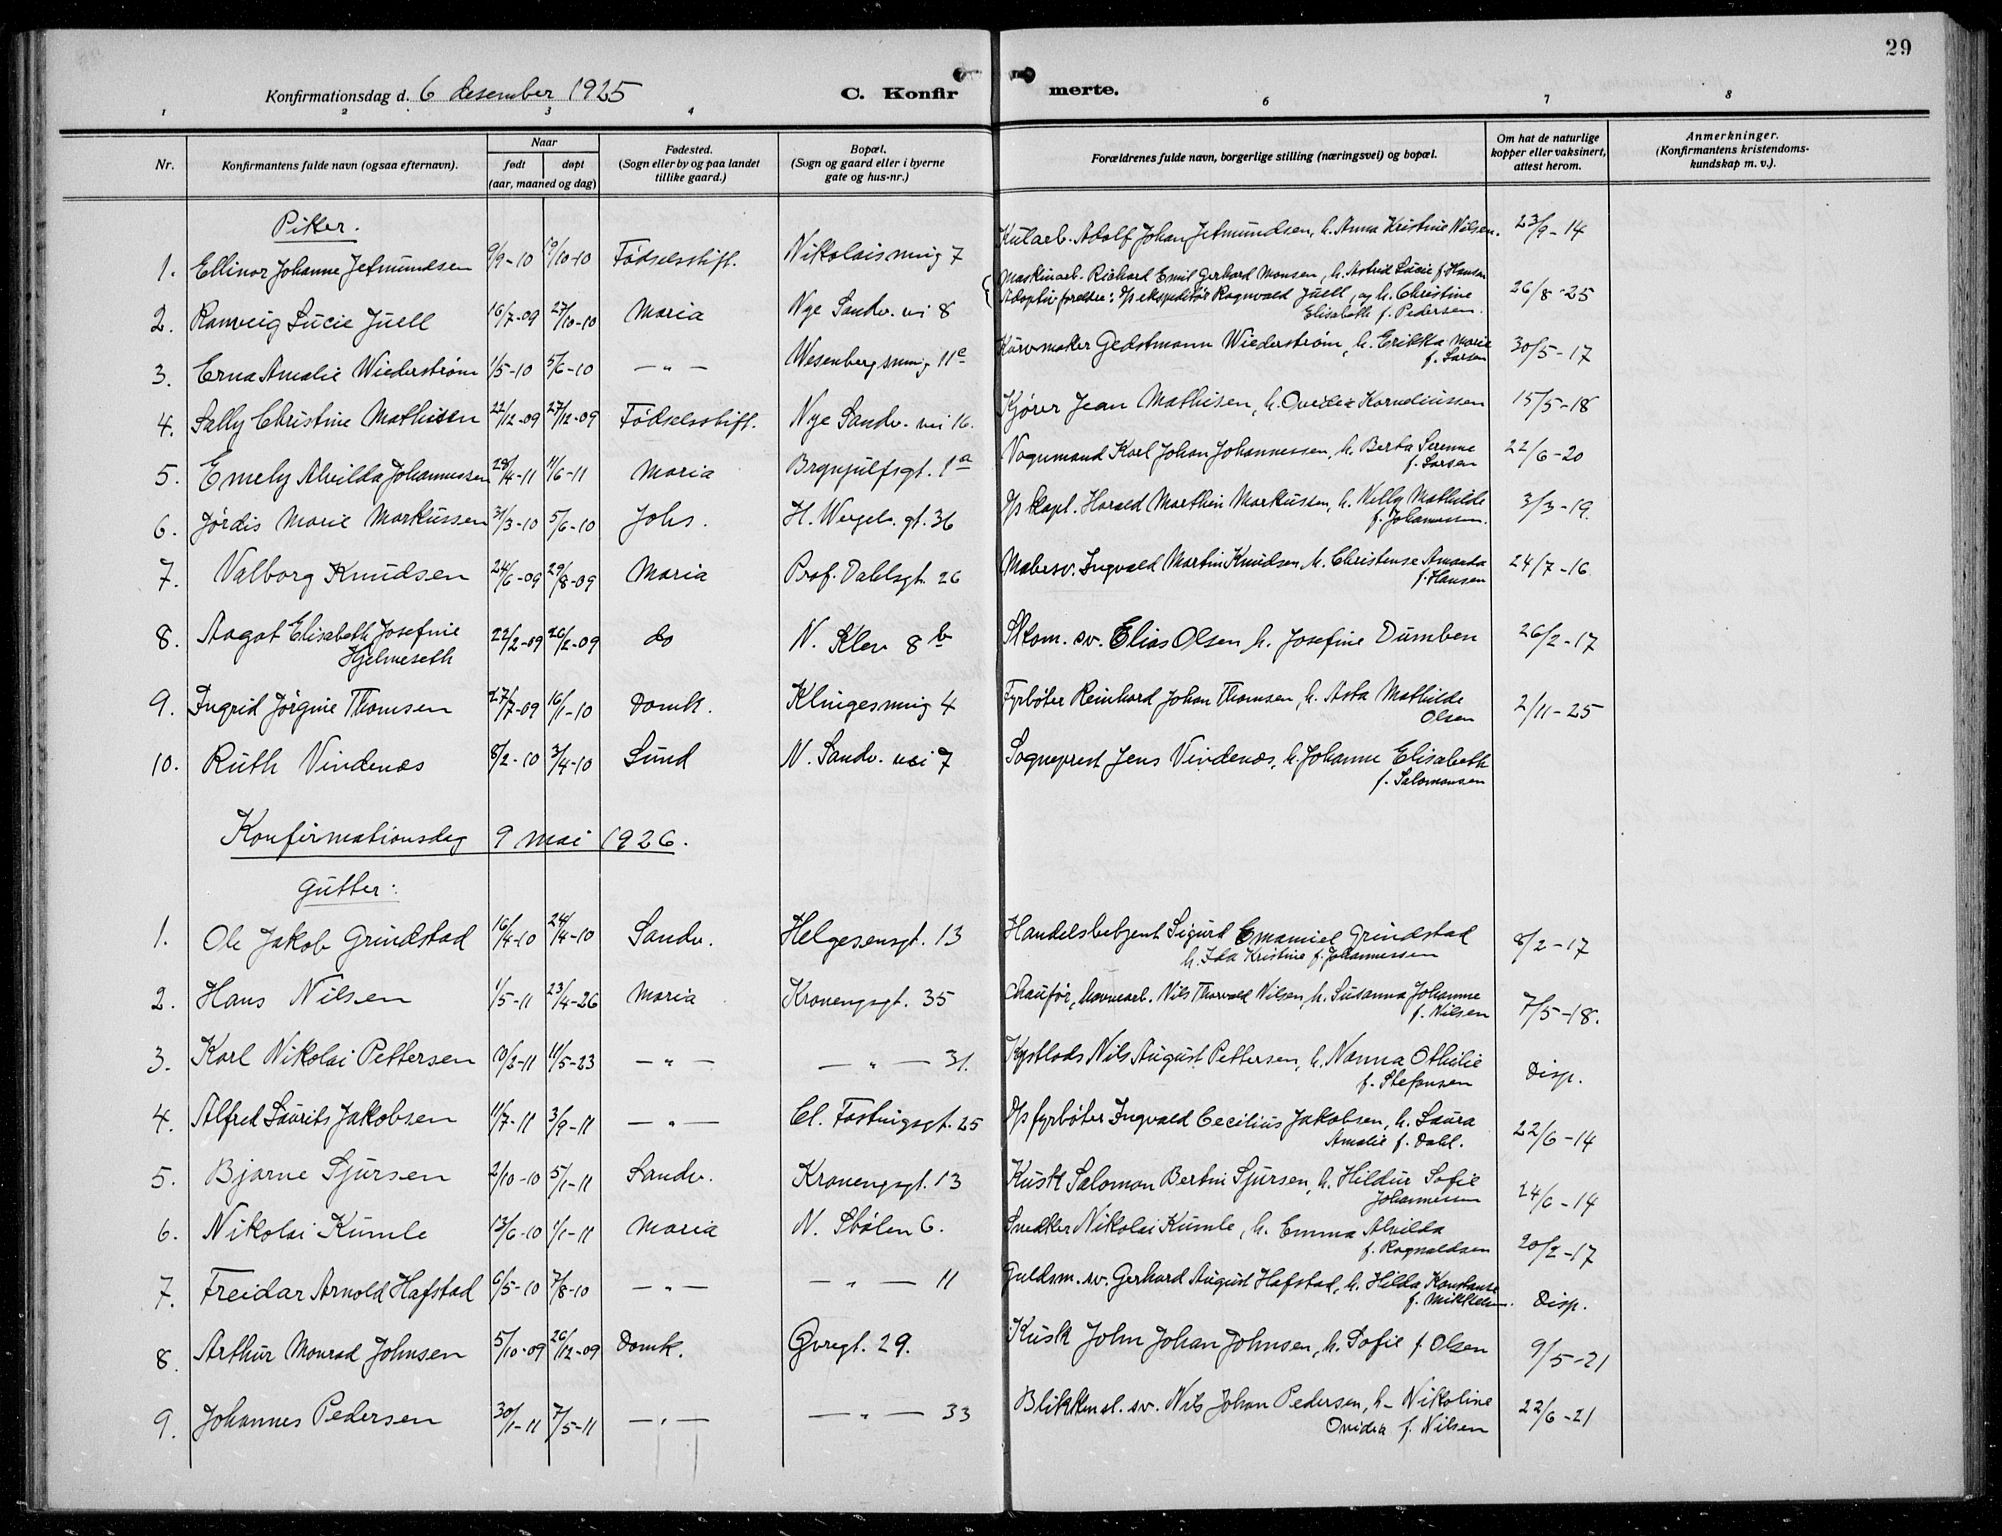 29
Konfirmationsdag d. 6 desember 1925
C. Konfir
merte.
1 2 3 4 6 7 8
Nr.
Konfirmantens fulde navn (ogsaa efternavn).
Naar
født døpt
(aar, maaned og dag)
Fødested.
(Sogn eller by og paa landet
tillike gaard.)
Bopæl.
(Sogn og gaard eller i byerne
gate og hus-nr.)
Forældrenes fulde navn, borgerlige stilling (næringsvei) og bopæl.
Om hat de naturlige
kopper eller vaksinert,
attest herom.
Anmerkninger.
(Konfirmantens kristendoms-
kundskap m. v.).
Piker.
1. Ellinor Johanne Jetmundsen 9/9-10 19/10-10 Fødselsstift. Nikolaismug 7 Kularb. Adolf Johan Jetmundsen, h. Anna Kristine Nilsen. 23/9-14
2. Ranveig Lucie Juell 16/7-09 27/10-10 Maria Nye Sandv. vei 8 Maskinarb. Richard Emil Gerhard Monsen, h. Astrid Lucie f. Hansen
Adoptivforeldre: D/s ekspeditør Ragnvald Juell, og h. Christine
Elisabeth f. Pedersen. 26/8-25
3. Erna Amalie Wiederstrøm 1/5-10 5/6-10 — " — Wesenbergsmug 11e Kurvmaker Gedstmann Wiederstrøm, h. Erikka Marie
f. Larsen 30/5-17
4. Sally Christine Mathisen 22/12-09 27/12-09 Fødselsstift. Nye Sandv. vei 16. Kjører Jean Mathisen, h. Ovidia Korneliussen 15/5-18
5. Emely Alvilda Johannessen 28/4-11 11/6-11 Maria Brynjulfsgt. 1a Vognmand Karl Johan Johannessen, h. Berta Serenne
f. Larsen 22/6-20
6. Jørdis Marie Markussen 31/3-10 5/6-10 Johs. H. Wergel. gt. 36 D/s kapt. Harald Marthin Markussen, h. Nelly Mathilde
f. Johannessen. 3/3-19.
7. Valborg Knudsen 24/6-09 29/8-09 Maria Prof. Dahlsgt. 26 Malersv. Ingvald Martin Knudsen, h. Christense Amanda
f. Hansen 24/7-16
8. Aagot Elisabeth Josefine
Hjelmeseth 22/2-09 26/2-09 do N. Klev 8b Skom. sv. Elias Olsen h. Josefine Dumben 26/2-17
9. Ingrid Jørgine Thomsen 27/7-09 16/1-10 Domk. Klingesmug 4 Fyrbøter Reinhard Johan Thomsen, h. Asta Mathilde
Olsen 2/11-25
10. Ruth Vindenes 8/2-10 3/4-10 Sund N. Sandv. vei 7 Sogneprest Jens Vindenes, h. Johanne Elisabeth
f. Salomonsen
Konfirmationsdag 9 mai 1926.
Gutter:
1. Ole Jakob Grindstad 16/4-10 24/4-10 Sandv. Helgesensgt. 13 Handelsbetjent Sigurd Emanuel Grindstad
h. Ida Kristine f. Johannessen 8/2-17
2. Hans Nilsen 1/5-11 23/4-26 Maria Kronengsgt. 35 Chauför, havnearb. Nils Thorvald Nilsen, h. Susanna Johanne
f. Nilsen 7/5-18.
3. Karl Nikolai Pettersen 10/2-11 11/5-23 — " — — " — 31. Kystlods Nils August Pettersen, h. Nanna Othilie
f. Stefansen Disp.
4. Alfred Laurits Jakobsen 11/7-11 3/9-11 — " — Cl. Fastingsgt. 25 D/s fyrbøter Ingvald Cecilius Jakobsen, h. Laura
Amalie f. Dahl. 22/6-14
5. Bjarne Sjursen 2/10-10 5/1-11 Sandv. Kronengsgt. 13 Kusk Salomon Bertin Sjursen, h. Hildur Sofie
Johannessen 24/6-14
6. Nikolai Kumle 13/6-10 1/1-11 Maria N. Stølen 6. Snedker Nikolai Kumle, h. Emma Alvilda
f. Ragnvaldsen 20/2-17
7. Freidar Arnold Hafstad 6/5-10 7/8-10 — " — — " — 11 Guldsm. sv. Gerhard August Hafstad, h. Hilda Konstanse
f. Mikkelsen. Disp.
8. Arthur Monrad Johnsen 5/10-09 26/12-09 Domk. Øvregt. 29. Kusk John Johan Johnsen, h. Sofie f. Olsen 9/5-21
9. Johannes Pedersen 30/1-11 7/5-11 — " — — " — 33 Blikkensl. sv. Nils Johan Pedersen, h. Nikoline
Ovidia f. Nilsen 22/6-21